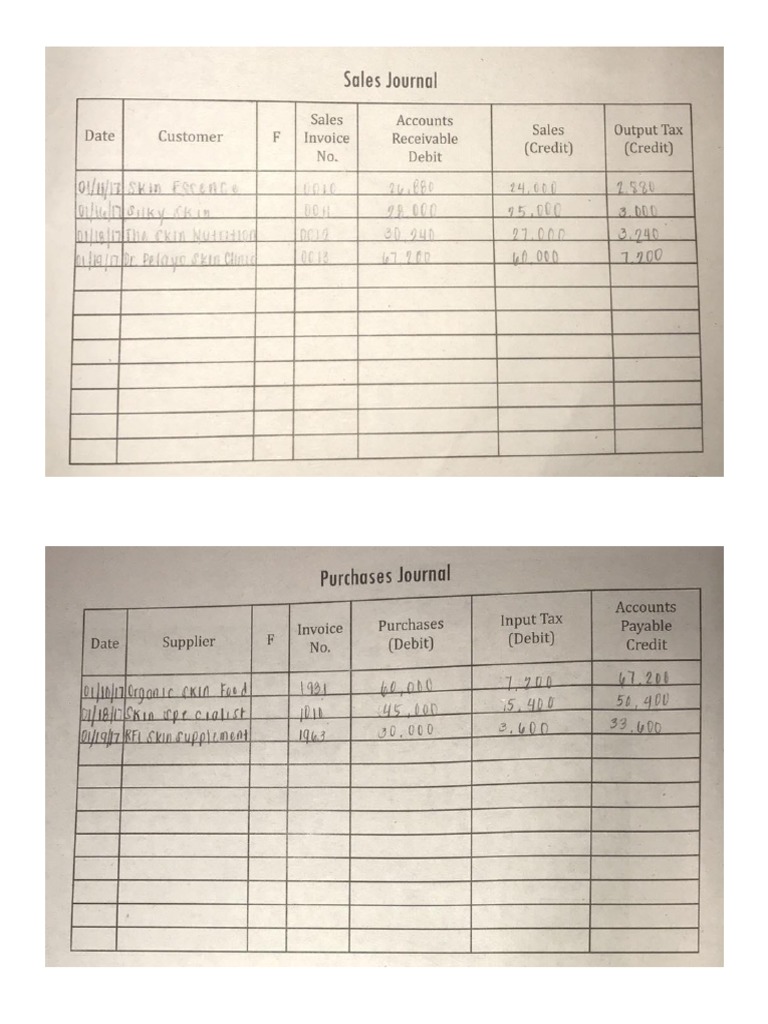 Sales Journal
Date Customer F Sales Invoice No. Accounts Receivable Debit Sales (Credit) Output Tax (Credit)
01/11/17 Skin Escence 0010 26,880 24,000 2,880
01/16/17 Silky Skin 0011 28,000 25,000 3,000
01/18/17 The Skin Nutrition 0012 30,240 27,000 3,240
01/19/17 Dr. Pelayo Skin Clinic 0013 67,200 60,000 7,200
Purchases Journal
Date Supplier F Invoice No. Purchases (Debit) Input Tax (Debit) Accounts Payable Credit
01/10/17 Organic Skin Food 1931 60,000 7,200 67,200
01/18/17 Skin specialist 1010 45,000 5,400 50,400
01/19/17 RFL Skin supplement 1963 30,000 3,600 33,600